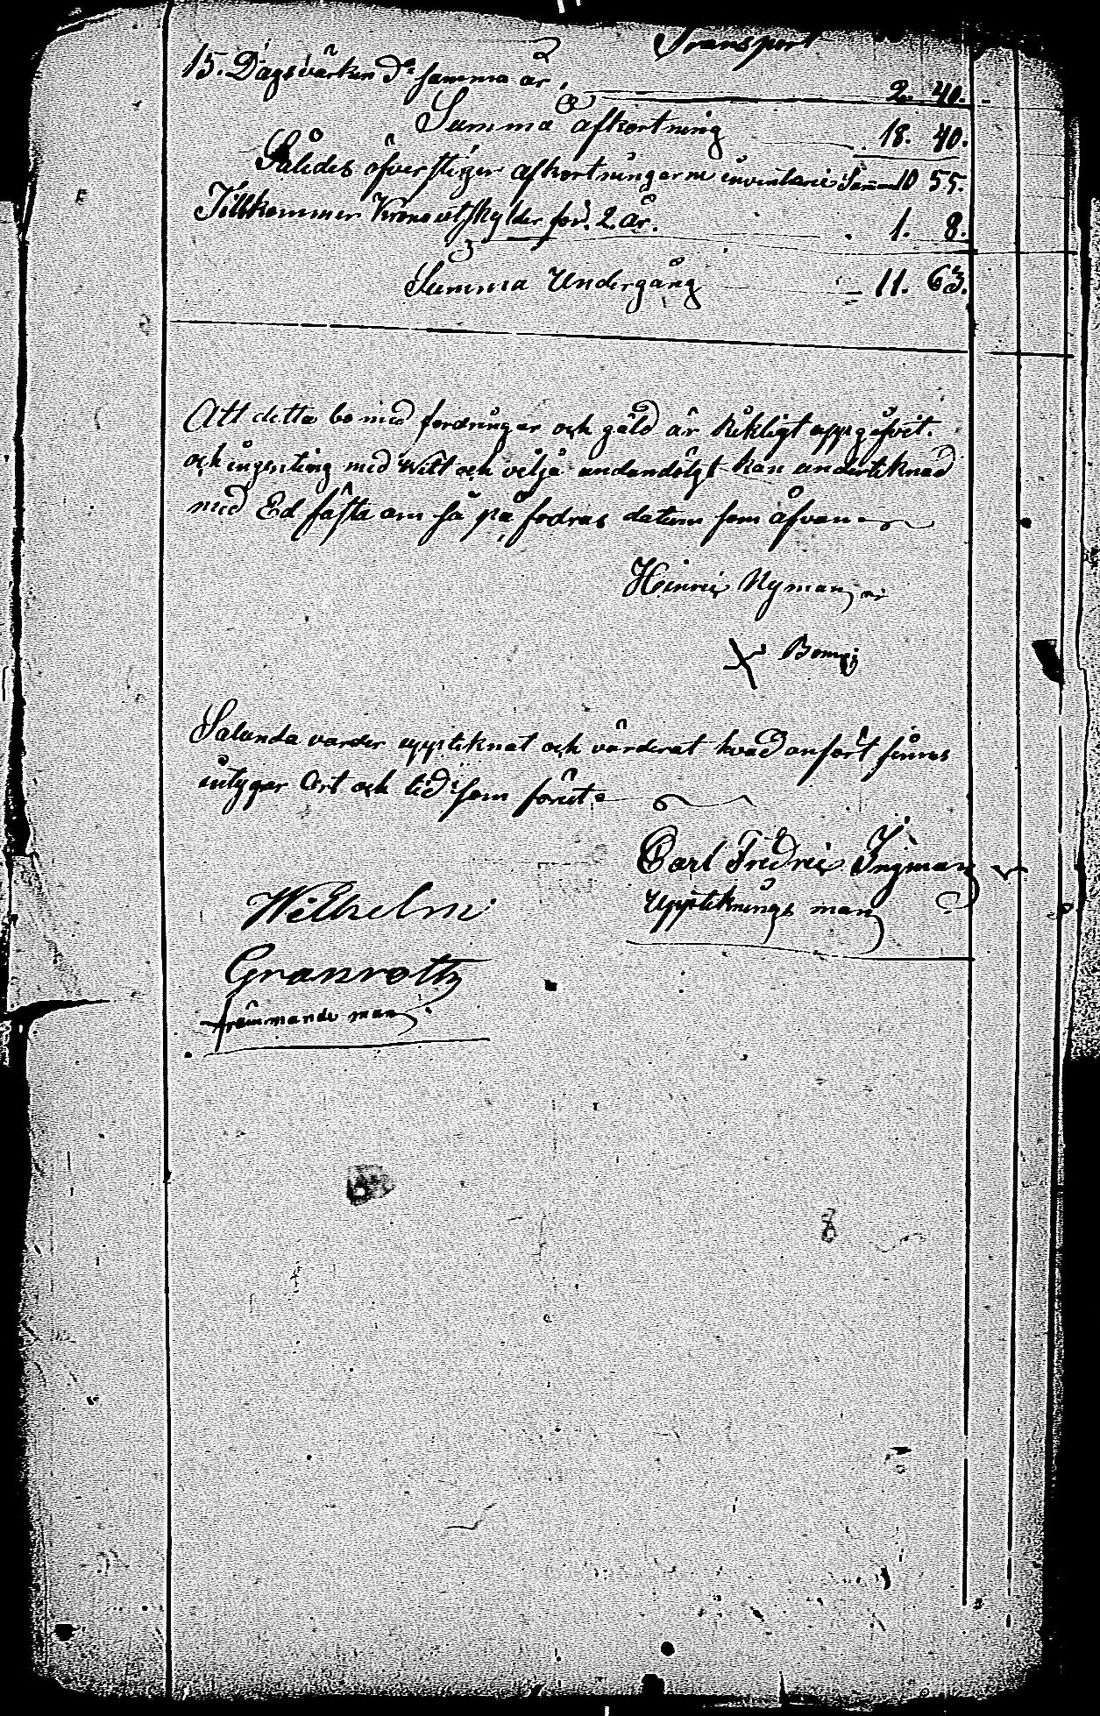 Transport
15. Dagsvärken d:o samma år 2. 40.
Summa afkortning 18. 40.
Således öfverstiger afkortningarne inventarii Summan 10 55.
Tillkommer Kronoutskylder för 2. år. 1. 8.
Summa Undergång 11. 63.
Att detta bo med fordringar och gäld är Riktigt uppgifvit.
och ingenting med Witt och vilja undandölgt kan underteknad
med Ed fästa om så på fodras datum som åfvan
Heinric Nyman
Bomrj
Salunda varder uppteknat och värderat hvad anfört finnes
intygar Ort och tid som förut
Carl Fredric Ingman
Uppteknings man
Wilhelm
Granroth
främmande man